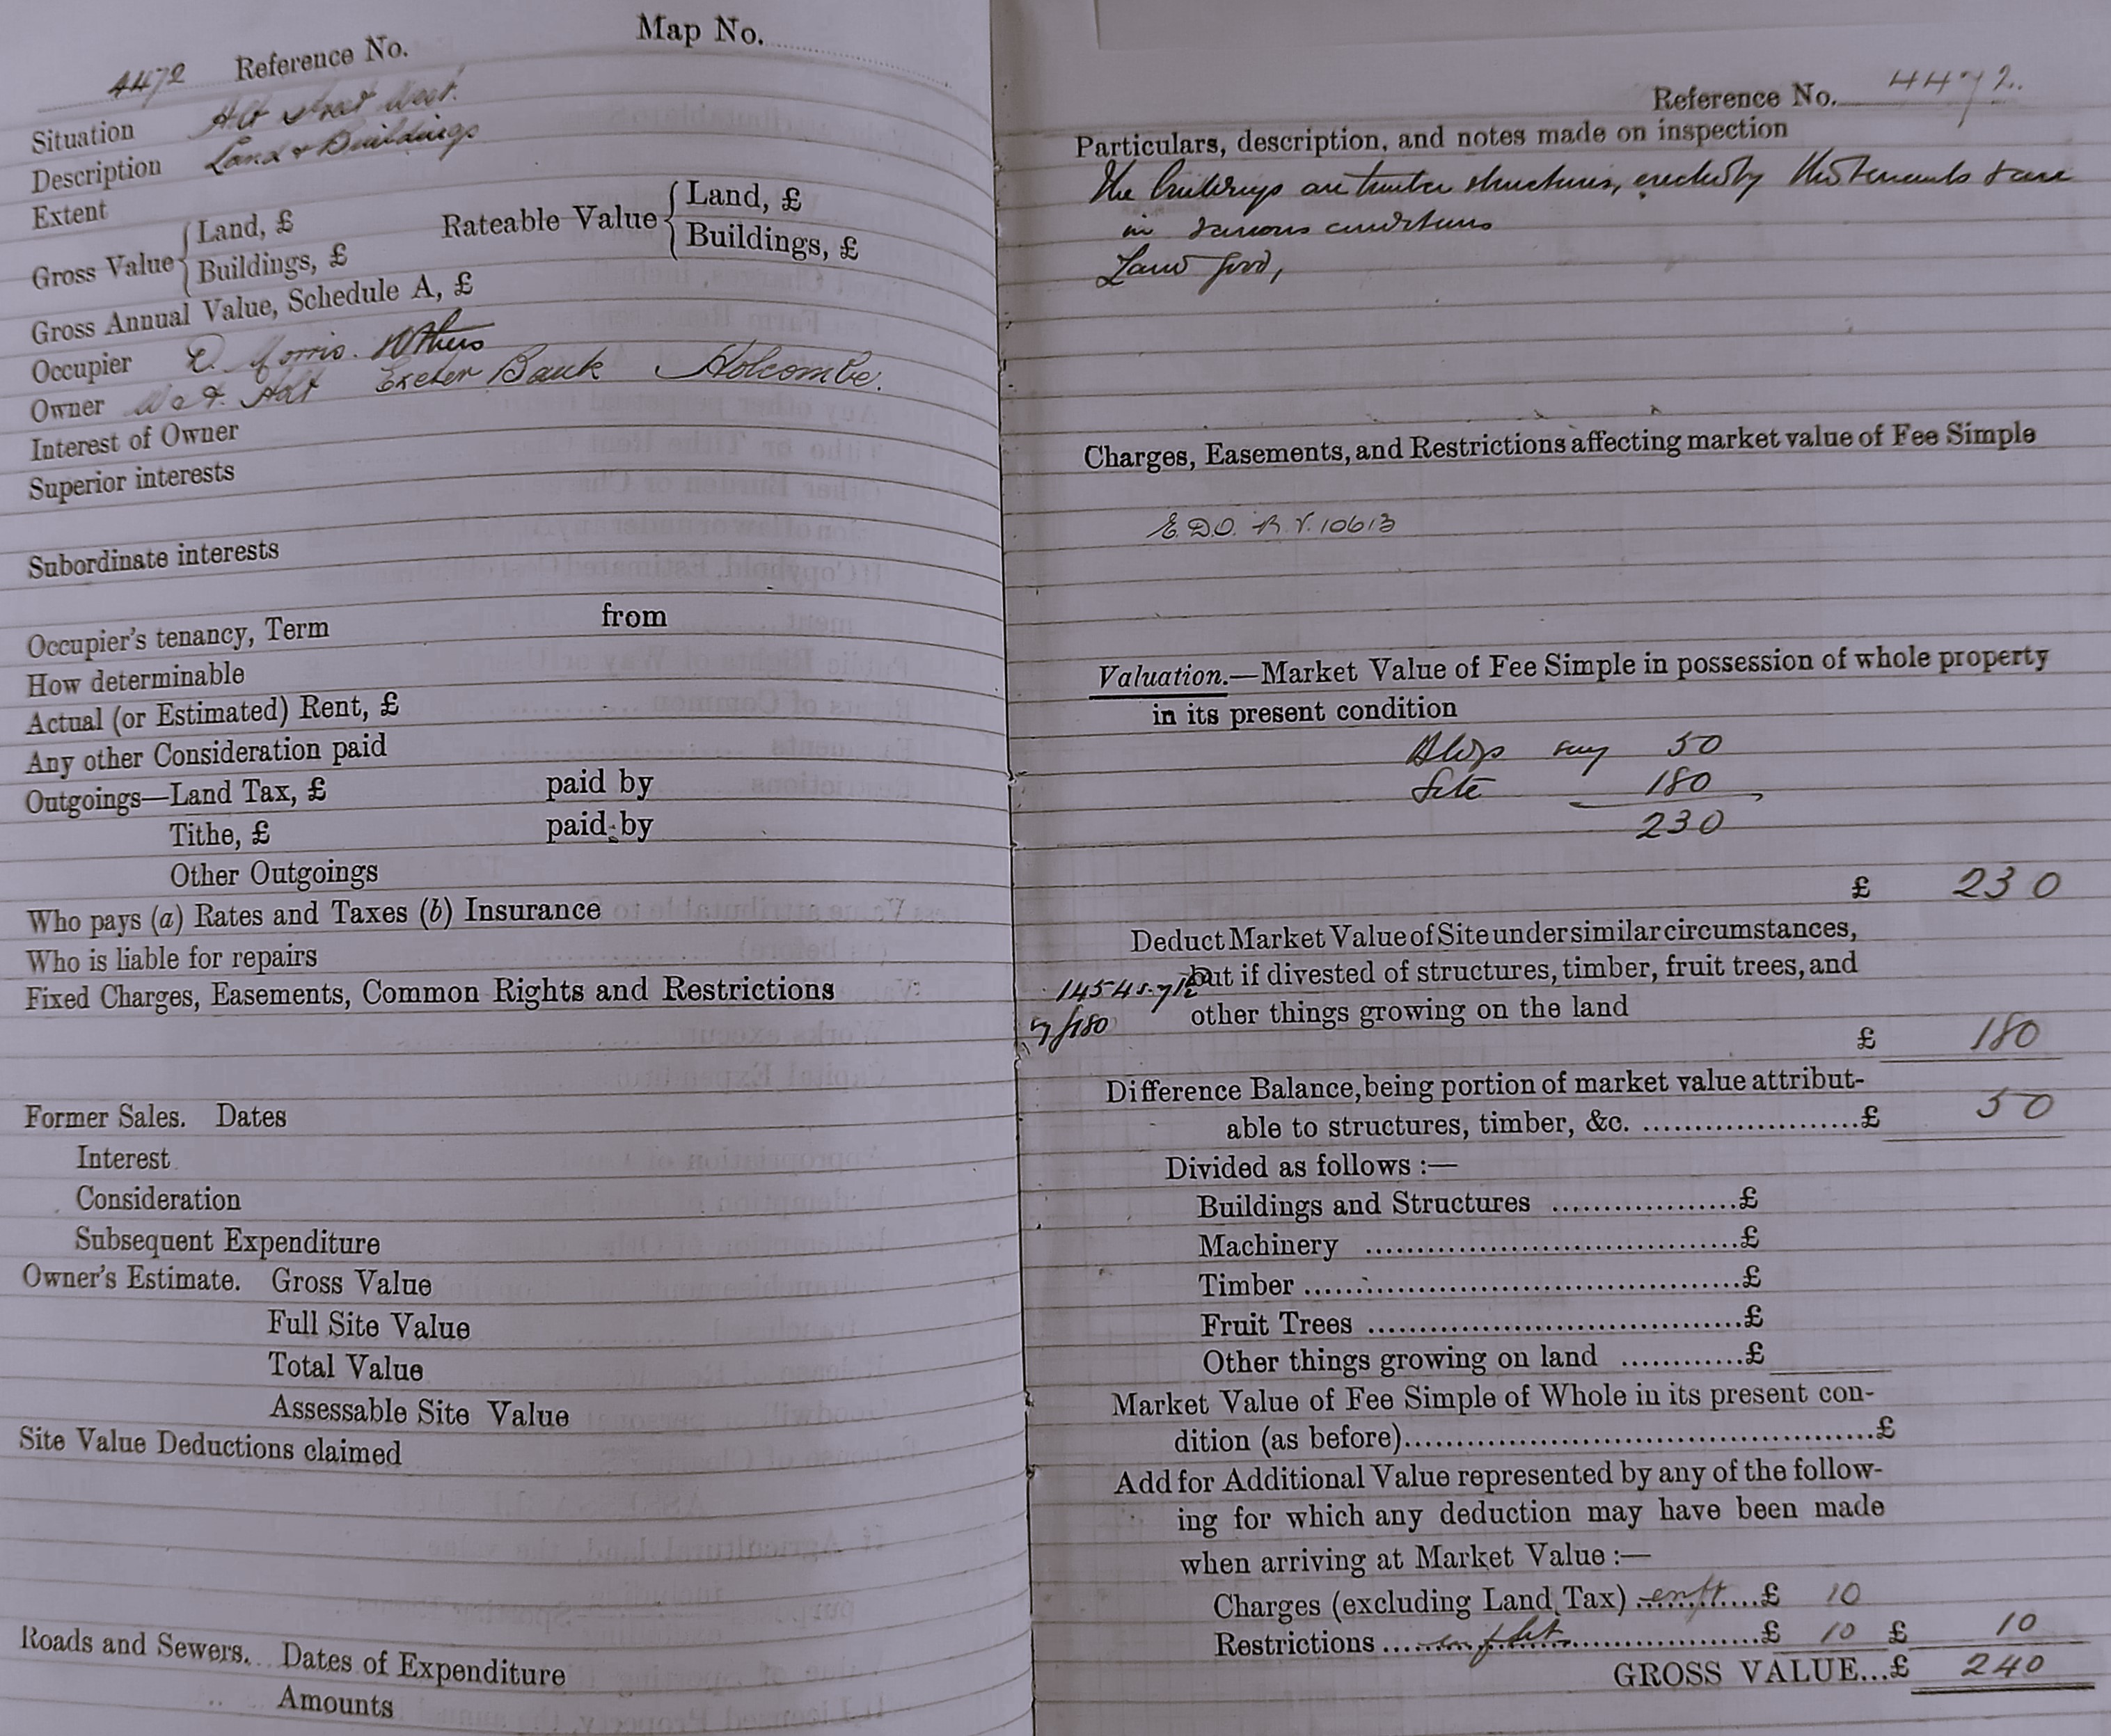 Map No.
4472 Reference No.
Situation Holt Street West.
Description Land & Buildings
Extent
Gross Value { Land, £ Rateable Value { Land, £
Buildings, £ Buildings, £
Gross Annual Value, Schedule A, £
Occupier
Owner Holt Exeter Bank Holcombe.
Interest of Owner
Superior interests
Subordinate interests
Occupier's tenancy, Term from
How determinable
Actual (or Estimated) Rent, £
Any other Consideration paid
Outgoings—Land Tax, £ paid by
Tithe, £ paid by
Other Outgoings
Who pays (a) Rates and Taxes (b) Insurance
Who is liable for repairs
Fixed Charges, Easements, Common Rights and Restrictions
Former Sales. Dates
Interest
Consideration
Subsequent Expenditure
Owner's Estimate. Gross Value
Full Site Value
Total Value
Assessable Site Value
Site Value Deductions claimed
Roads and Sewers. Dates of Expenditure
Amounts
Reference No. 4472.
Particulars, description, and notes made on inspection
The buildings are timber structures, erected by the tenants & are
in various conditions
Land good,
Charges, Easements, and Restrictions affecting market value of Fee Simple
E.D.O. R.V. 10613
Valuation.—Market Value of Fee Simple in possession of whole property
in its present condition
Bldgs say 50
Site 180
230
£ 230
Deduct Market Value of Site under similar circumstances,
but if divested of structures, timber, fruit trees, and
other things growing on the land
£ 180
Difference Balance, being portion of market value attribut-
able to structures, timber, &c. £ 50
Divided as follows :—
Buildings and Structures £
Machinery £
Timber £
Fruit Trees £
Other things growing on land £
Market Value of Fee Simple of Whole in its present con-
dition (as before) £
Add for Additional Value represented by any of the follow-
ing for which any deduction may have been made
when arriving at Market Value :—
Charges (excluding Land Tax) £ 10
Restrictions £ 10 £ 10
GROSS VALUE...£ 240